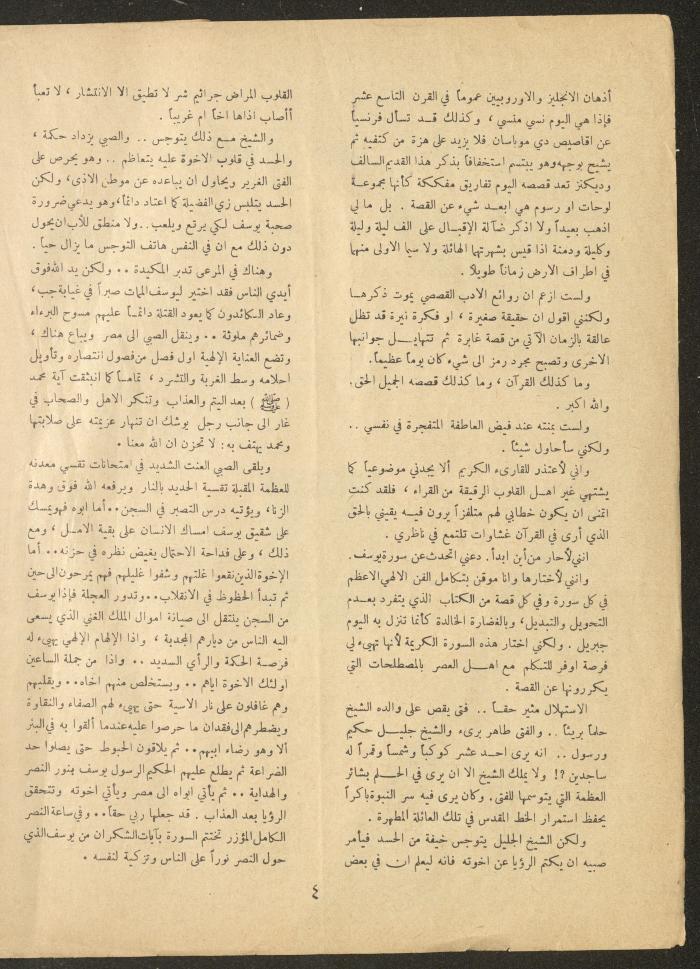 أذهان الانجليز والاوروبيين عموماً في القرن التاسع عشر
فإذا هي اليوم نسي منسي ، وكذلك قد تسأل فرنسياً
عن اقاصيص دي موباسان فلا يزيد على هزة من كتفيه ثم
يشيح بوجهه وهو يبتسم استخفافاً بذكر هذا القديم السالف
وديكنز تعد قصصه اليوم تفاريق مفككة كأنها مجموعة
لوحات او رسوم هي ابعد شيء عن القصة . بل ما لي
اذهب بعيداً ولا اذكر ضآلة الإقبال على الف ليلة وليلة
وكليلة ودمنة اذا قيس بشهرتها الهائلة ولا سيما الاولى منهما
في اطراف الارض زماناً طويلاً .
ولست ازعم ان روائع الادب القصصي يموت ذكرها
ولكنني اقول ان حقيقة صغيرة ، او فكرة نيرة قد تظل
عالقة بالزمان الآتي من قصة غابرة ثم تتهايل جوانبها
الاخرى وتصبح مجرد رمز الى شيء كان يوماً عظيماً .
وما كذلك القرآن ، وما كذلك قصصه الجميل الحق .
والله اكبر .
ولست بمنته عند فيض العاطفة المتفجرة في نفسي ..
ولكني سأحاول شيئاً .
واني لأعتذر للقارىء الكريم ألا يجدني موضوعياً كما
يشتهي غير اهل القلوب الرقيقة من القراء ، فلقد كنت
اتمنى ان يكون خطابي لهم متلفزاً يرون فيه يقيني بالحق
الذي أرى في القرآن غشارات تلتمع في ناظري .
انني لأحار من أين ابدأ . دعني اتحدث عن سورة يوسف .
وانني لأختارها وانا موقن بتكامل الفن الالهي الاعظم
في كل سورة وفي كل قصة من الكتاب الذي يتفرد بعدم
التحويل والتبديل، وبالغضارة الخالدة كأنما تنزل به اليوم
جبريل . ولكني اختار هذه السورة الكريمة لأنها تهيىء لي
فرصة اوفر للتكلم مع اهل العصر بالمصطلحات التي
يكررونها عن القصة .
الاستهلال مثير حقاً .. فتى يقص على والده الشيخ
حلماً بريئاً .. والفتى طاهر برىء والشيخ جليل حكيم
ورسول .. انه يرى احد عشر كوكباً وشمساً وقمراً له
ساجدين ?! ولا يملك الشيخ الا ان يرى في الحلم بشائر
العظمة التي يتوسمها للفتى. وكان يرى فيه سر النبوة باكراً
يحفظ استمرار الخط المقدس في تلك العائلة المطهرة .
ولكن الشيخ الجليل يتوجس خيفة من الحسد فيأمر
صبيه ان يكتم الرؤيا عن اخوته فانه ليعلم ان في بعض
القلوب المراض جراثيم شر لا تطيق الا الانتشار ، لا تعبأ
أأصاب اذاها اخاً ام غريباً .
والشيخ مع ذلك يتوجس .. والصبي يزداد حكمة ،
والحسد في قلوب الاخوة عليه يتعاظم .. وهو يحرص على
الفتى الغرير ويحاول ان يباعده عن موطن الاذى، ولكن
الحسد يتلبس زي الفضيلة كما اعتاد دائماً، وهو يدعي ضرورة
صحبة يوسف لكي يرتع ويلعب .. ولا منطق للأب ان يحول
دون ذلك مع ان في النفس هاتف التوجس ما يزال حياً .
وهناك في المرعى تدبر المكيدة .. ولكن يد الله فوق
أيدي الناس فقد اختير ليوسف الممات صبراً في غيابة جب،
وعاد الكائدون كما يعود القتلة دائماً عليهم مسوح البرءاء
وضمائرهم ملوثة .. وينقل الصبي الى مصر ويباع هناك ،
وتضع العناية الإلهية اول فصل من فصول انتصاره وتأويل
احلامه وسط الغربة والتشرد ، تماماً كما انبثقت آية محمد
( ﷺ ) بعد اليتم والعذاب وتنكر الاهل والصحاب في
غار الى جانب رجل يوشك ان تنهار عزيمته على صلابتها
ومحمد يهتف به : لا تحزن ان الله معنا .
ويلقى الصبي العنت الشديد في امتحانات تقسي معدنه
للعظمة المقبلة تقسية الحديد بالنار ويرفعه الله فوق وهدة
الزنا، ويؤتيه درس التصبر في السجن .. أما ابوه فهو يمسك
على شقيق يوسف امساك الانسان على بقية الامل ، ومع
ذلك ، وعلى فداحة الاحتمال يغيض نظره في حزنه .. أما
الإخوة الذين نقعوا غلتهم وشفوا غليلهم فهم يمرحون الى حين
ثم تبدأ الحظوظ في الانقلاب .. وتدور العجلة فإذا يوسف
من السجن ينتقل الى صيانة اموال الملك الغني الذي يسعى
اليه الناس من ديارهم المجدبة ، واذا الإلهام الإلهي يهيىء له
فرصة الحكمة والرأي السديد .. واذا من جملة الساعين
اولئك الاخوة اياهم .. ويستخلص منهم اخاه .. ويقلبهم
وهم غافلون على نار الاسية حتى يهيىء لهم الصفاء والنقاوة
ويضطرهم الى فقدان ما حرصوا عليه عندما ألقوا به في البئر
ألا وهو رضاء ابيهم .. ثم يلاقون الحبوط حتى يصلوا حد
الضراعة ثم يطلع عليهم الحكيم الرسول يوسف بنور النصر
والهداية .. ثم يأتي ابواه الى مصر ويأتي اخوته وتتحقق
الرؤيا بعد العذاب . قد جعلها ربي حقاً .. وفي ساعة النصر
الكامل المؤزر تختتم السورة بآيات الشكران من يوسف الذي
حول النصر نوراً على الناس وتزكية لنفسه .
٤